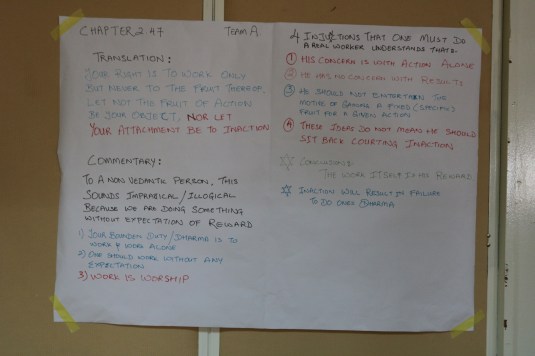 CHAPTER 2.47 TEAM A.
TRANSLATION:
YOUR RIGHT IS TO WORK ONLY
BUT NEVER TO THE FRUIT THEREOF.
LET NOT THE FRUIT OF ACTION
BE YOUR OBJECT, NOR LET
YOUR ATTACHMENT BE TO INACTION
COMMENTARY:
TO A NON VEDANTIC PERSON, THIS
SOUNDS IMPRATICAL / ILLOGICAL
BECAUSE WE ARE DOING SOMETHING
WITHOUT EXPECTATION OF REWARD
1) YOUR BOUNDEN DUTY / DHARMA IS TO
WORK & WORK ALONE
2) ONE SHOULD WORK WITHOUT ANY
EXPECTATION
3) WORK IS WORSHIP
4 INJUCTIONS THAT ONE MUST DO
A REAL WORKER UNDERSTANDS THAT:
1 HIS CONCERN IS WITH ACTION ALONE
2 HE HAS NO CONCERN WITH RESULTS
3 HE SHOULD NOT ENTERTAIN THE
MOTIVE OF GAINING A FIXED (SPECIFIC)
FRUIT FOR A GIVEN ACTION
4 THESE IDEAS DO NOT MEAN HE SHOULD
SIT BACK COURTING INACTION
CONCLUSIONS:
THE WORK ITSELF IS THE REWARD
INACTION WILL RESULT IN FAILURE
TO DO ONES DHARMA